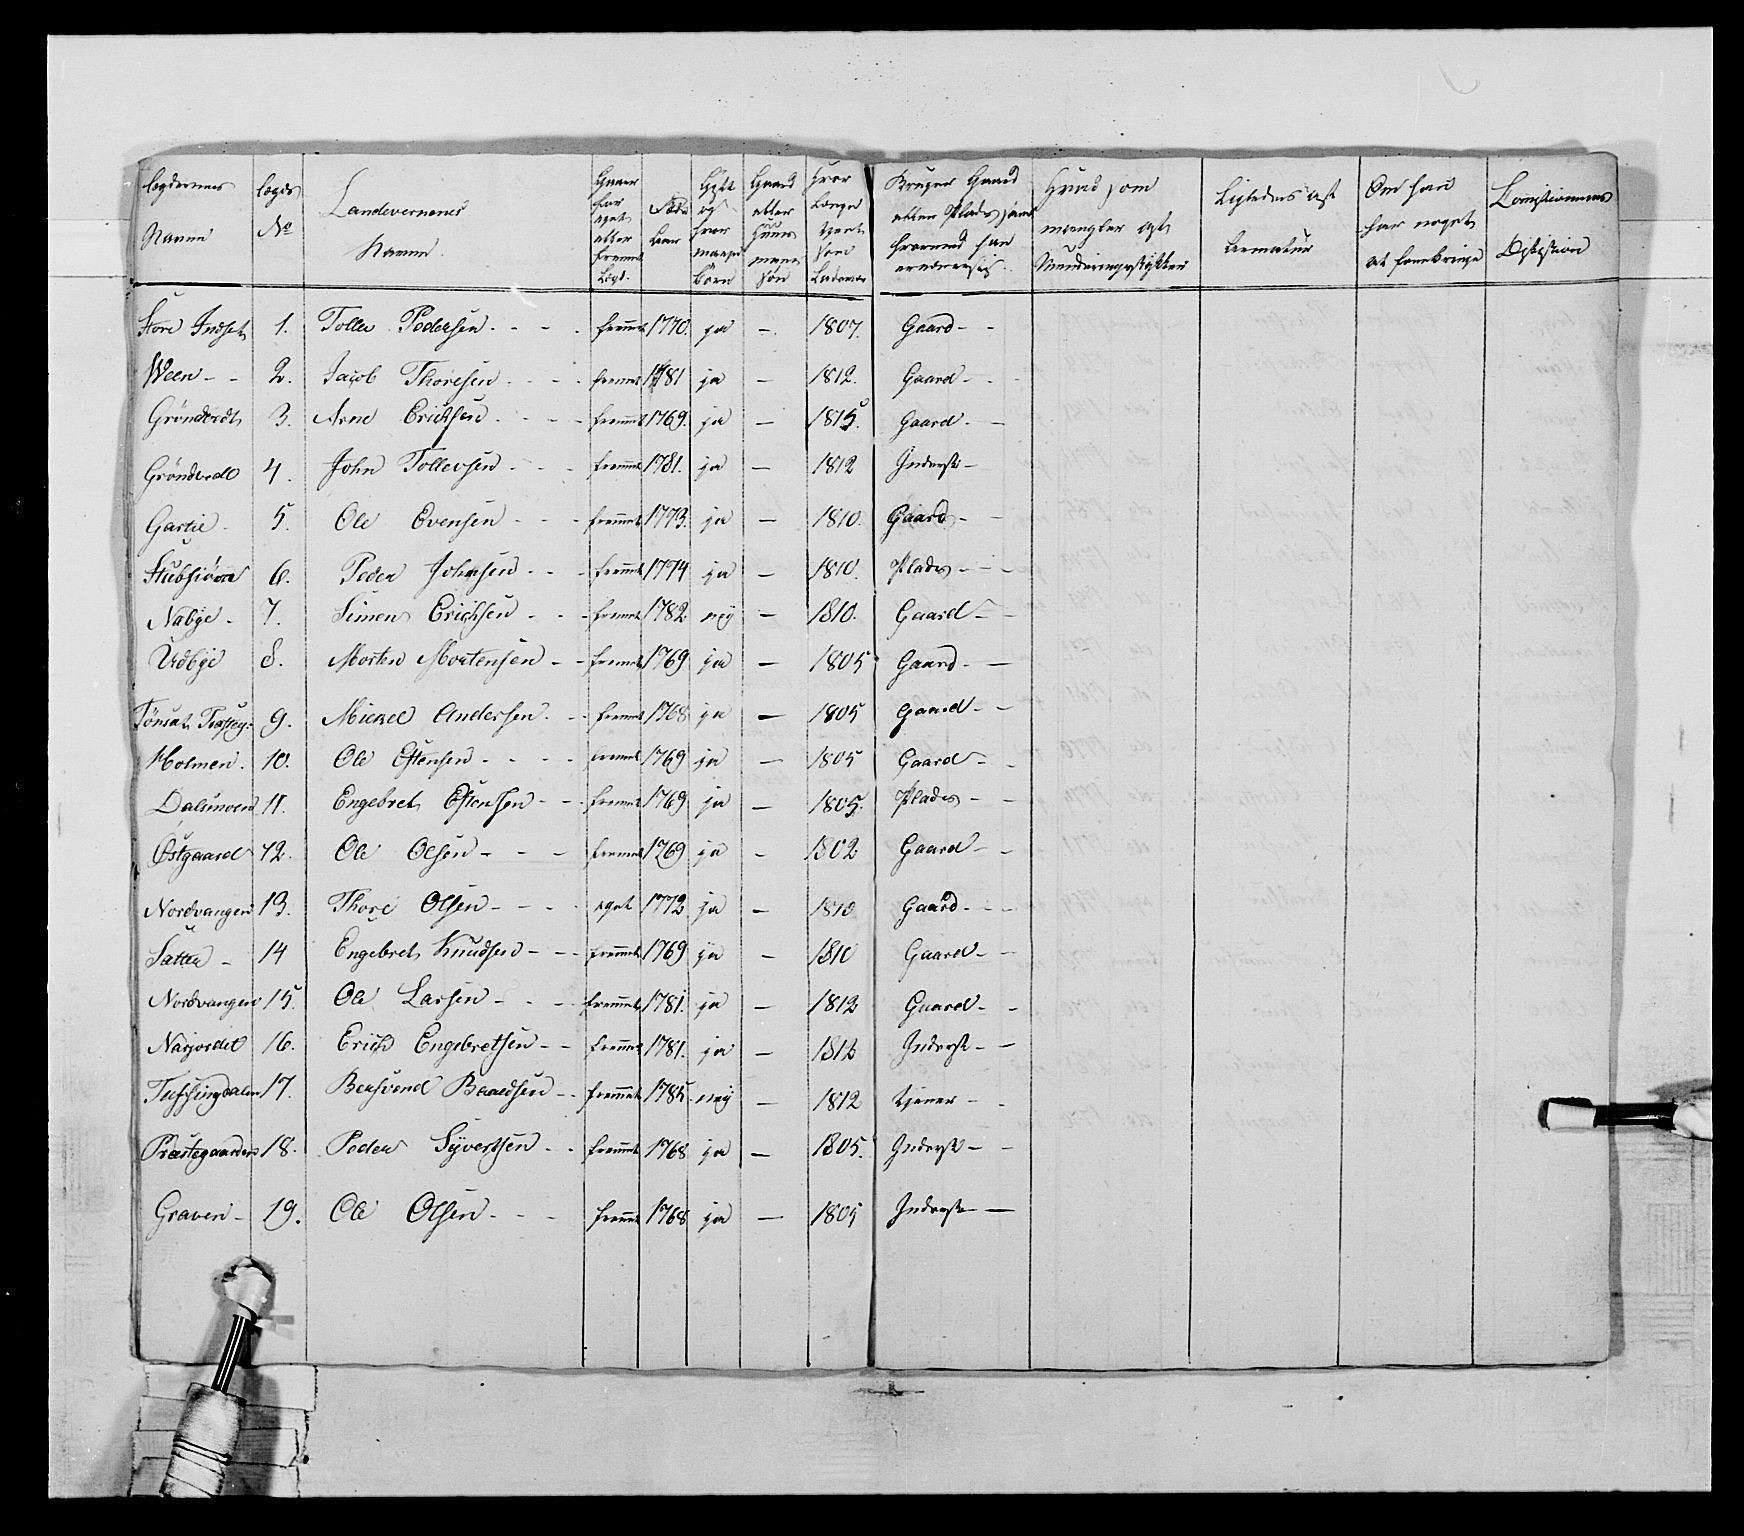 Legdernes Navne | Legds No | Landeverneres Navne | Gaaer for eget eller fremmet Legd. | Føde Aar | Gift og hvor mange Børn | Gaard eller Huus mands Søn | Hvor Længe tjent som Landeværn | Bruger Gaard eller Plads samt hvormed han ernærer sig. | Hvad som mangler af Munderingsstykker | Ligeledes af Armatur | Om han har noget at frembringe | Comissionens Dicision
Store Indset | 1. | Tollev Pedersen | fremmet | 1770. | ja | - | 1807. | Gaard
Ween | 2. | Jacob Thoresen | fremmet | 1781 | ja | - | 1812. | Gaard
Gröndvedt | 3. | Arne Ericksen | fremmet | 1769. | ja | - | 1815. | Gaard
Gröndvedt | 4. | John Tollevsen | fremmet | 1781. | ja | - | 1812 | Inderst
Gartie | 5. | Ole Evensen | fremmet | 1773. | ja | - | 1810. | Gaard
Stubsiöen | 6. | Peder Johnsen | fremmet | 1774 | ja | - | 1810. | Plads
Nabye | 7. | Simen Erichsen | fremmet | 1782 | neÿ | - | 1810. | Gaard
Udbye | 8. | Morten Mortensen | fremmet | 1769 | ja | - | 1805 | Gaard
Tönset | 9. | Mickel Andersen | fremmet | 1768 | ja | - | 1805 | Gaard
Holmen | 10. | Ole Estensen | fremmet | 1769 | ja | - | 1805 | Gaard
Dalsmoen | 11. | Engebret Estensen | fremmet | 1769 | ja | - | 1805. | Plads
Østgaard | 12. | Ole Olsen | fremmet | 1769 | ja | - | 1802 | Gaard
Nordvangen | 13. | Thore Olsen | eget | 1772 | ja | - | 1810 | Gaard
Sætter | 14 | Engebret Knudsen | fremmet | 1769 | ja | - | 1810 | Gaard
Nordvangen | 15. | Ole Larsen | fremmet | 1781. | ja | - | 1812 | Gaard
Narjordet | 16. | Erich Engebretsen | fremmet | 1781. | ja | - | 1812 | Inderst
Tufsingdalen | 17. | Bersvend Baardsen | fremmet | 1785. | neÿ | - | 1812 | tjener
Præstegaarden | 18. | Peder Syvertsen | fremmet | 1768 | ja | - | 1805. | Inderst
Graven | 19. | Ole Olsen | fremmet | 1768 | ja | - | 1805 | Inderst